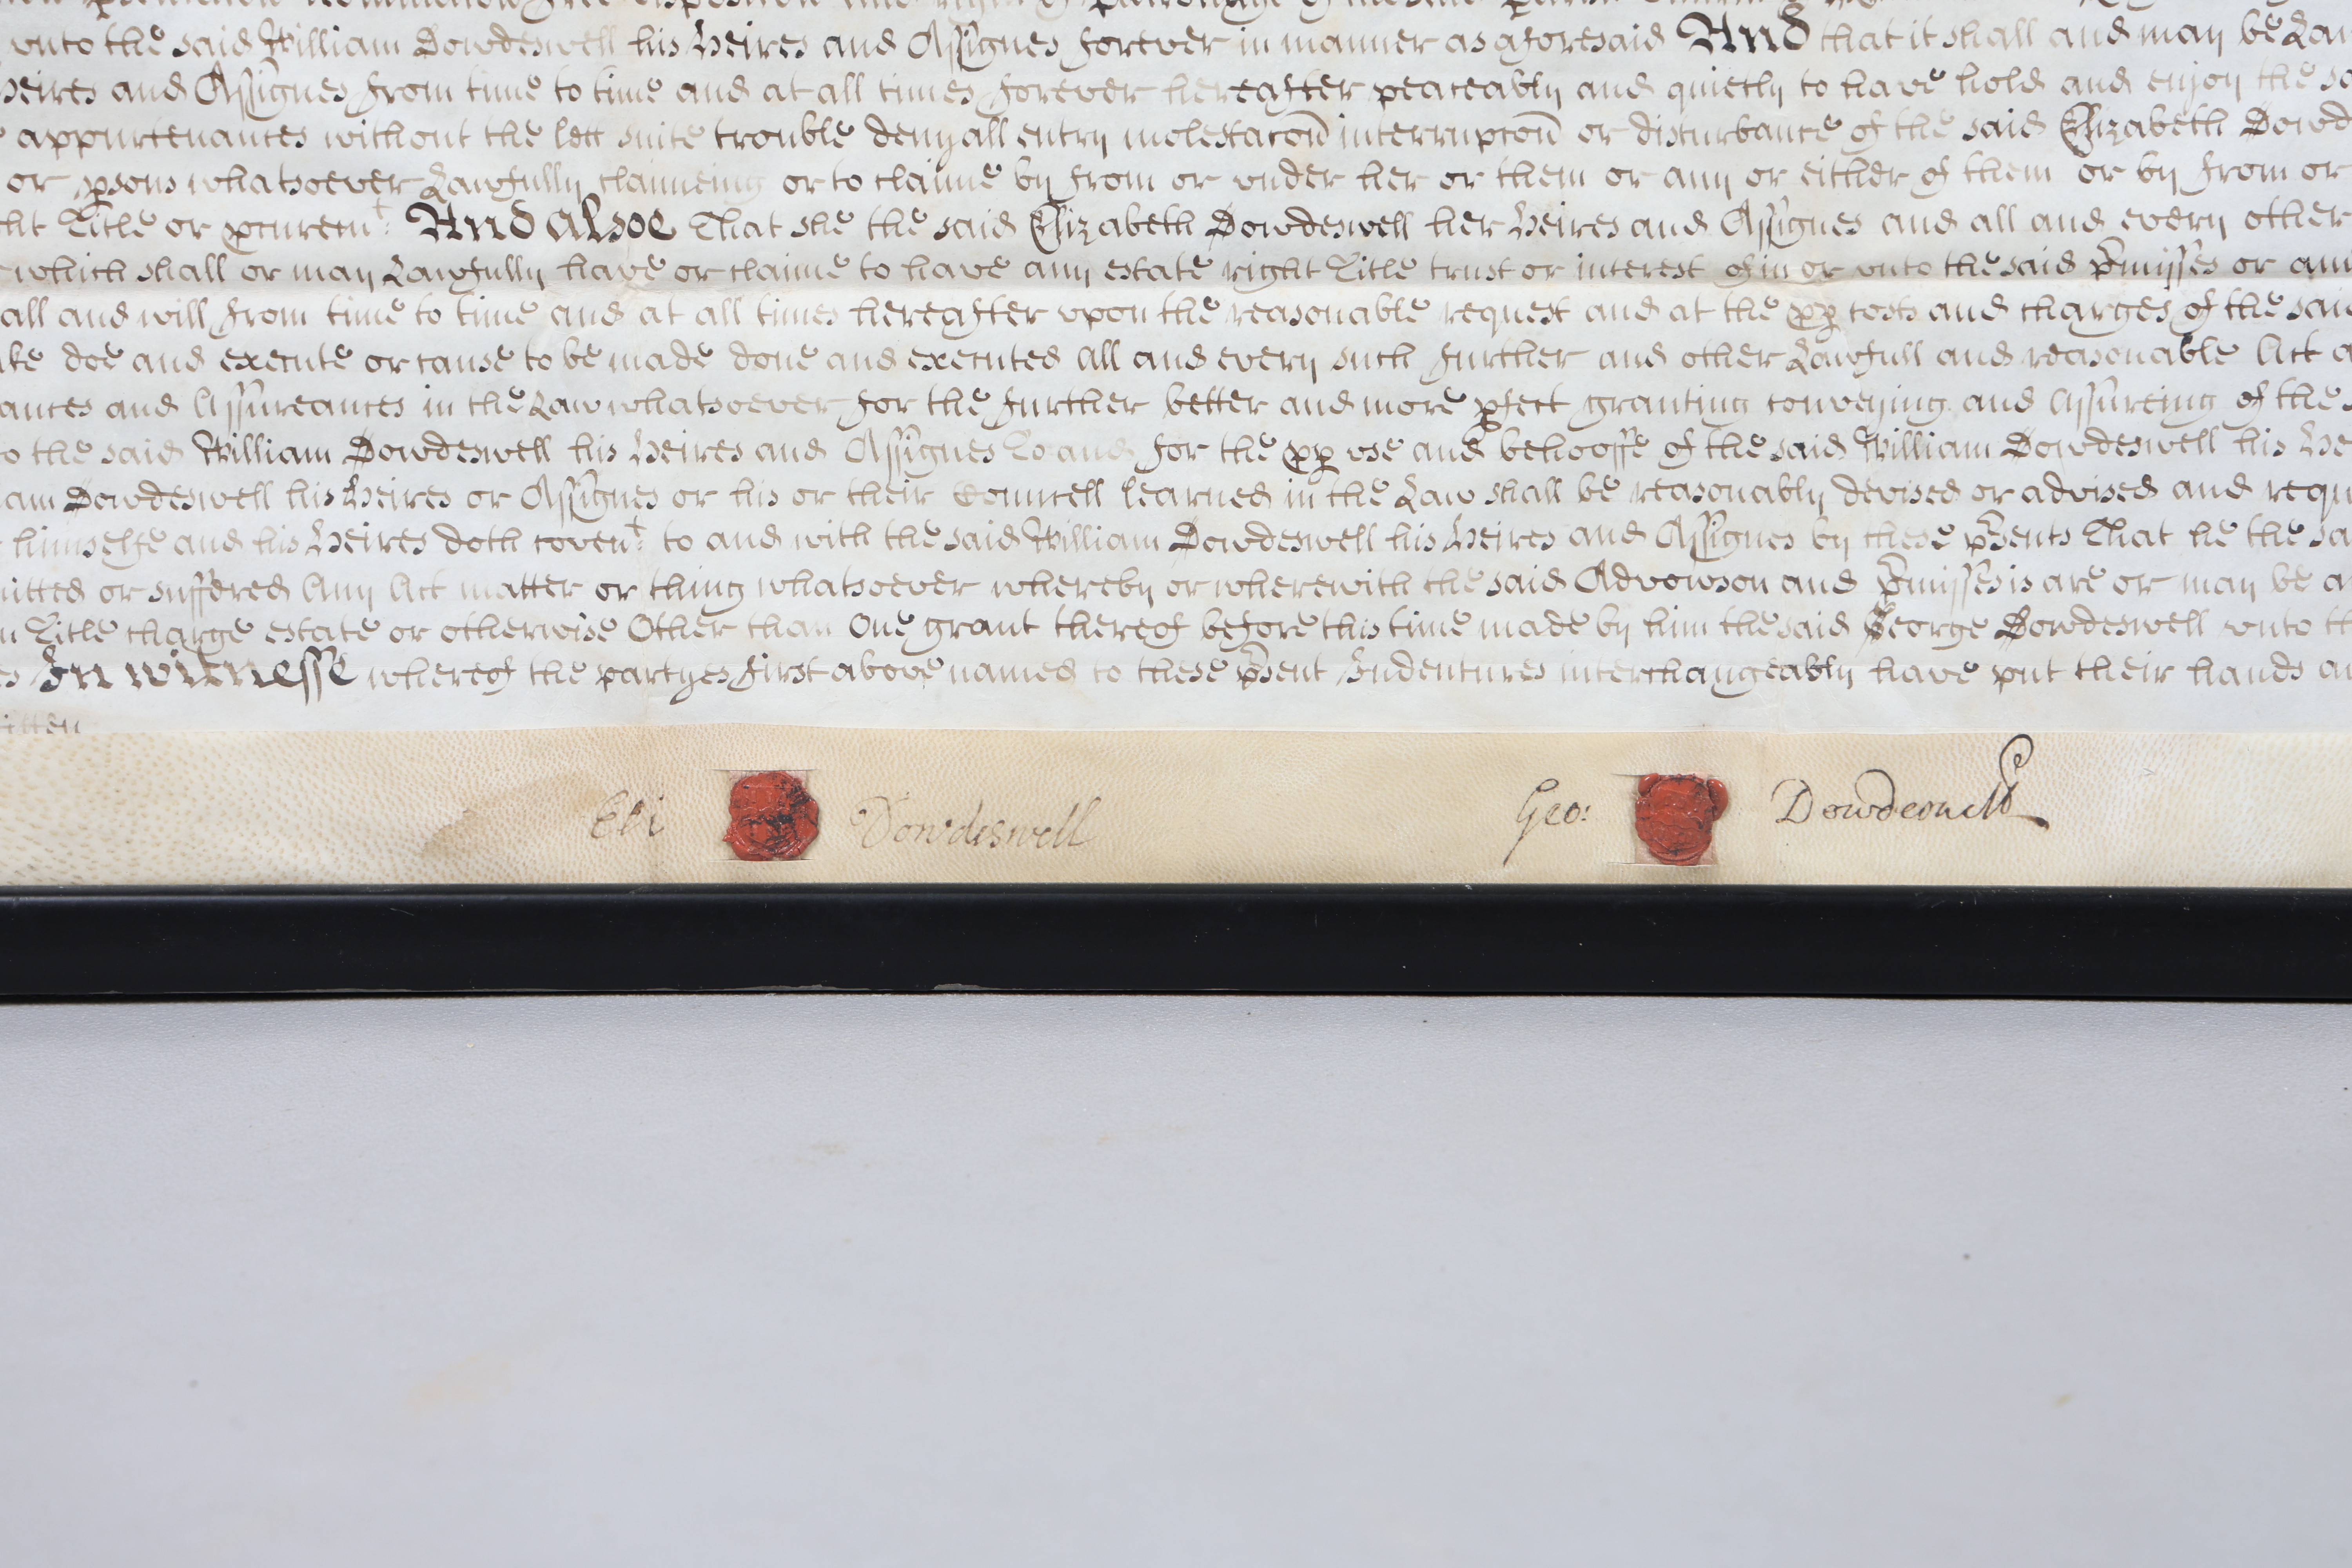 vnto the said William Dowdeswell his Heires and Assignes forever in manner as aforesaid And that it shall and may be Law
heires and Assignes from time to time and at all times forever hereafter peaceably and quietly to have hold and enjoy the sa
appurtenances without the lett suite trouble denyall entry molestacon interrupcon or disturbance of the said Elizabeth Dowd
or psons whatsoever Lawfully claimeing or to claime by from or vnder her or them or any or either of them or by from or
ht Title or pcurem.t And alsoe That she the said Elizabeth Dowdeswell her Heires and Assignes and all and every other
which shall or may Lawfully have or claime to have any estate right Title trust or interest of in or vnto the said pmisses or any
all and will from time to time and at all times hereafter vpon the reasonable request and at the pp costs and charges of the said
ke doe and execute or cause to be made done and executed all and every such further and other Lawfull and reasonable Act a
ances and Assureances in the Law whatsoever for the further better and more pfect granting conveying and Assureing of the s
o the said William Dowdeswell his Heires and Assignes To and for the pp vse and behooffe of the said William Dowdeswell his He
am Dowdeswell his Heires or Assignes or his or their Councell learned in the Law shall be reasonably devised or advised and requ
himselfe and his Heires doth coven.t to and with the said William Dowdeswell his Heires and Assignes by these psents That he the sa
itted or suffered Any Act matter or thing whatsoever whereby or wherewith the said Advowson and pmisses is are or may be a
n Title charge estate or otherwise Other than One grant thereof before this time made by him the said George Dowdeswell vnto th
s In witnesse whereof the partyes first above named to these psent Indentures interchangeably have put their hands an
itten
Eli Dowdeswell Geo: Dowdeswell